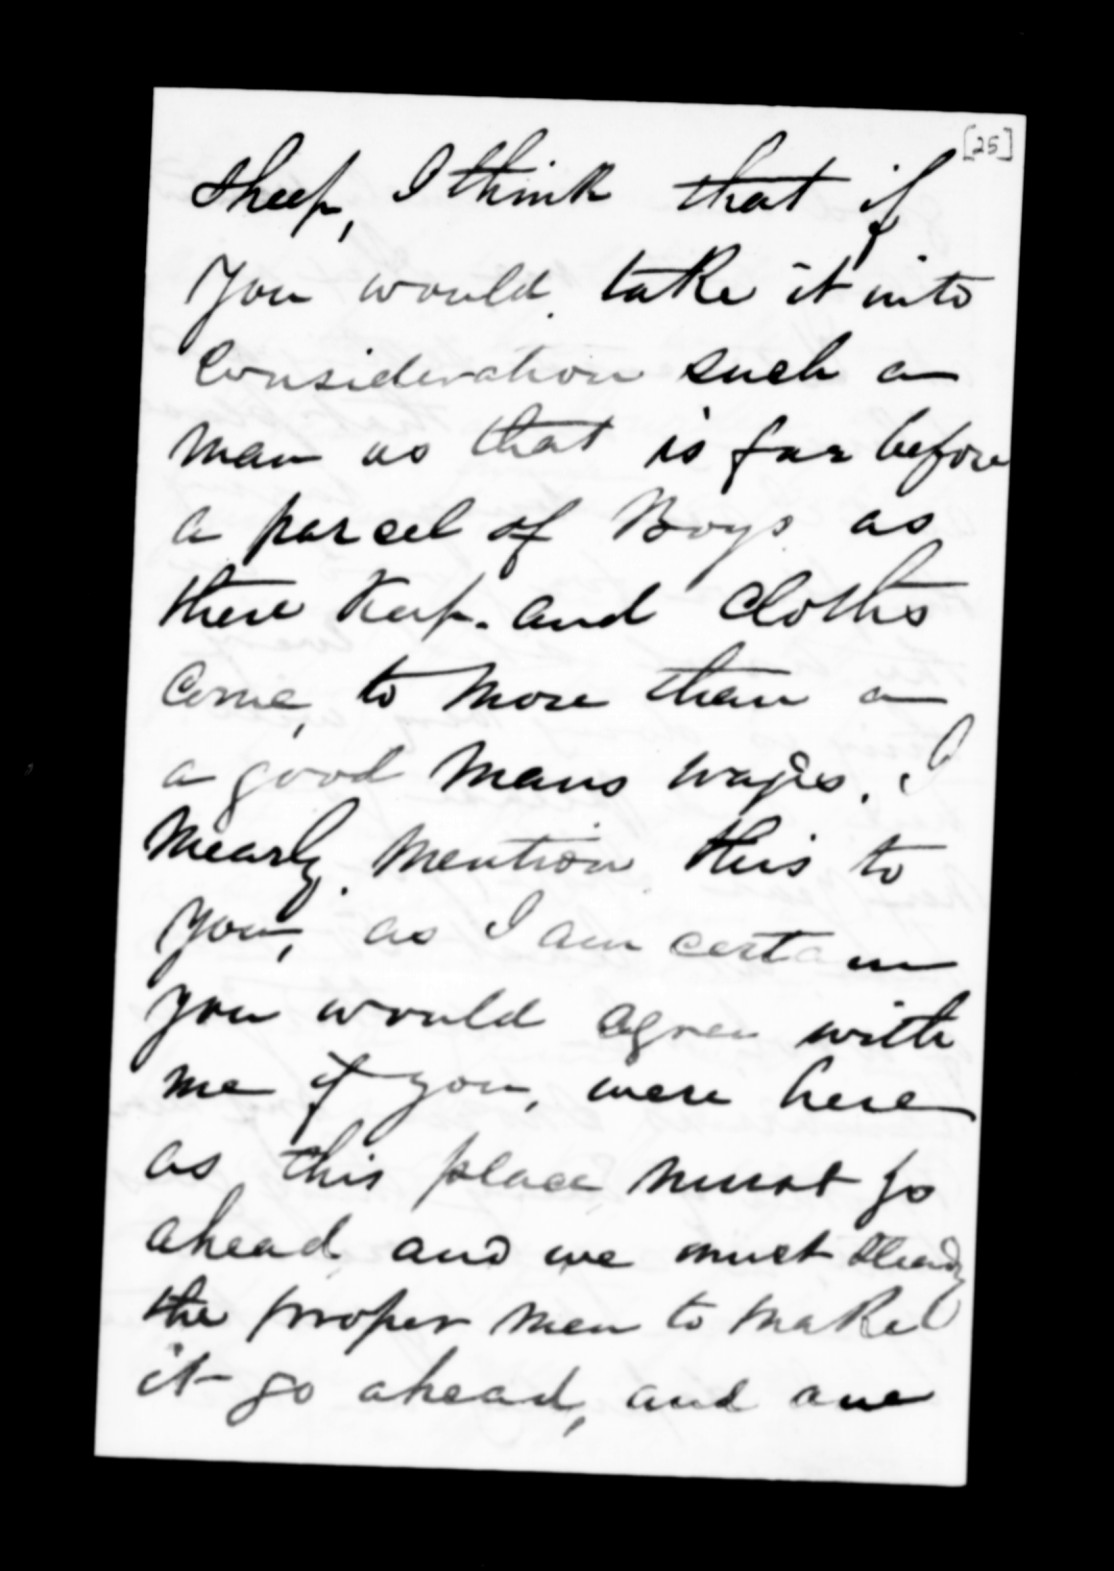 [25]
sheep, I think that if
you would take it into
Consideration such a
man as that is far before
a parcel of Boys as
there Keep. and Cloths
Come, to more than a
a good mans wages. I
Mearly. Mention this to
you, as I am certain
you would agree with
me if you, were here
as this place must go
ahead and we must
the proper men to make
it go ahead, and one